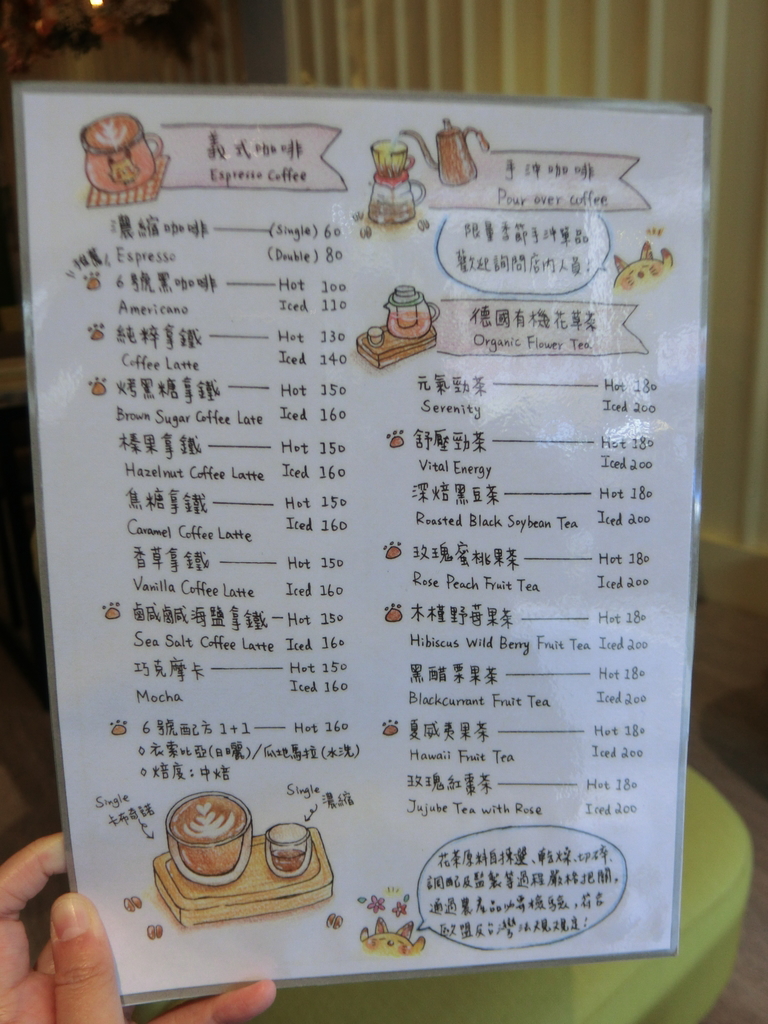 義式咖啡
Espresso Coffee
濃縮咖啡 (Single) 60
Espresso (Double) 80
推薦
6號黑咖啡 Hot 100
Americano Iced 110
純粹拿鐵 Hot 130
Coffee Latte Iced 140
烤黑糖拿鐵 Hot 150
Brown Sugar Coffee Late Iced 160
榛果拿鐵 Hot 150
Hazelnut Coffee Latte Iced 160
焦糖拿鐵 Hot 150
Caramel Coffee Latte Iced 160
香草拿鐵 Hot 150
Vanilla Coffee Latte Iced 160
鹹鹹海鹽拿鐵 Hot 150
Sea Salt Coffee Latte Iced 160
巧克摩卡 Hot 150
Mocha Iced 160
6號配方1+1 Hot 160
衣索比亞(日曬)/瓜地馬拉(水洗)
焙度:中焙
Single
卡布奇諾
Single
濃縮
手沖咖啡
Pour over coffee
限量季節手沖單品
歡迎詢問店內人員!
德國有機花草茶
Organic Flower Tea
元氣勁茶 Hot 180
Serenity Iced 200
舒壓勁茶 Hot 180
Vital Energy Iced 200
深焙黑豆茶 Hot 180
Roasted Black Soybean Tea Iced 200
玫瑰蜜桃果茶 Hot 180
Rose Peach Fruit Tea Iced 200
木槿野莓果茶 Hot 180
Hibiscus Wild Berry Fruit Tea Iced 200
黑醋栗果茶 Hot 180
Blackcurrant Fruit Tea Iced 200
夏威夷果茶 Hot 180
Hawaii Fruit Tea Iced 200
玫瑰紅棗茶 Hot 180
Jujube Tea with Rose Iced 200
花茶原料自揀選、乾燥、切碎、
調配及監製等過程嚴格把關,
通過農產品必需檢驗,符合
歐盟及台灣法規規定!